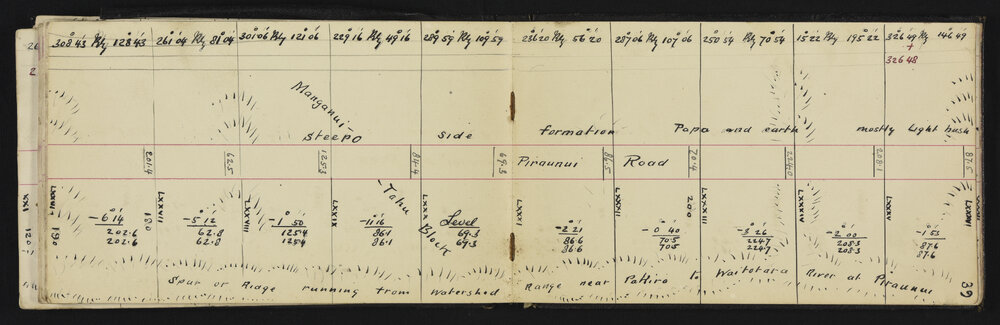 308 43 Rly 128 43 261 04 Rly 81 04 301 06 Rly 121 06 229 16 Rly 49 16 289 59 Rly 109 59 236 20 Rly 56 20 287 06 Rly 107 06 250 54 Rly 70 54 15 22 Rly 195 22 326 49 Rly 146 49
326 48
Manganui-
Steep side formation Papa and earth mostly Light bush
201.4 62.5 125.3 84.4 69.3 Piraunui 86.5 Road 70.4 224.0 208.1 87.5
-Tahu
Block
LXXVI LXXVII LXXVIII LXXIX LXXX LXXXI LXXXII LXXXIII LXXXIV LXXXV LXXXVI
190 190 200
-6°14' -5°12' -1°50' -11°16' Level -2°21' -0°40' -3°26' -2°00' -1°53'
202.6 62.8 125.4 86.1 69.3 86.6 70.5 224.7 208.3 87.6
202.6 62.8 125.4 86.1 69.3 86.6 70.5 224.7 208.3 87.6
Spur or Ridge running from watershed Range near Pokiro to Waitotara River at Piraunui
39